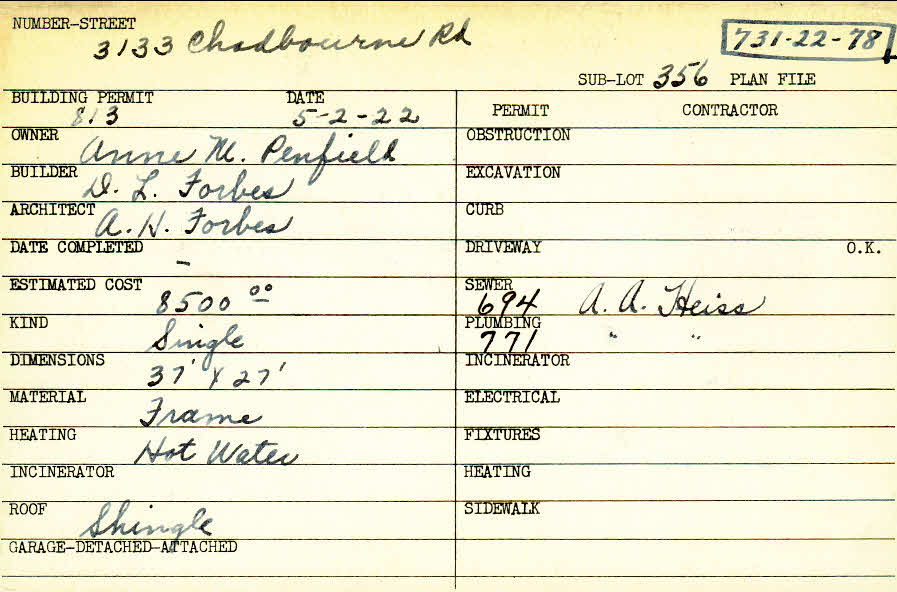 NUMBER-STREET
3133 Chadbourne Rd
731-22-78
SUB-LOT 356 PLAN FILE
BUILDING PERMIT DATE
813 5-2-22
PERMIT CONTRACTOR
OWNER
Anne M. Penfield
OBSTRUCTION
BUILDER
D. L. Forbes
EXCAVATION
ARCHITECT
A. H. Forbes
CURB
DATE COMPLETED
-
DRIVEWAY O.K.
ESTIMATED COST
8500 00
SEWER
694 A. A. Heiss
KIND
Single
PLUMBING
771 " "
DIMENSIONS
37' X 27'
INCINERATOR
MATERIAL
Frame
ELECTRICAL
HEATING
Hot Water
FIXTURES
INCINERATOR
HEATING
ROOF
Shingle
SIDEWALK
GARAGE-DETACHED-ATTACHED